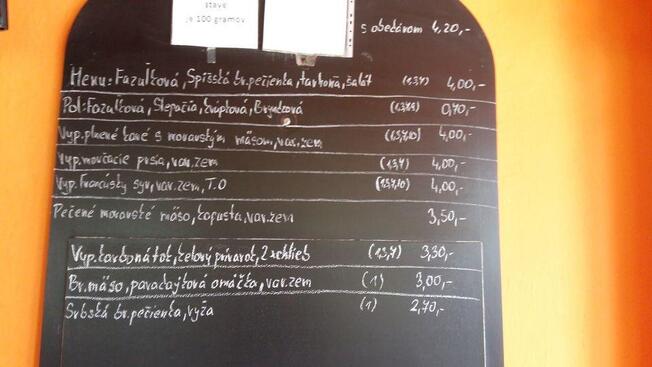 stave
je 100 gramov
s obedárom 4,20,-
Menu: Fazuľková, Spišská br.pečienka, tarhoňa, šalát (1,3,7) 4,00,-
Pol: Fazuľková, Slepačia, Brynzová (1,3,7,9) 0,70,-
Vyp. plnené s moravským mäsom, var.zem (1,3,7,10) 4,00,-
Vyp. morčacie prsia, var.zem (1,3,7) 4,00,-
Vyp. Francúsky syr, var.zem, T.O (1,3,7,10) 4,00,-
Pečené moravské mäso, kapusta, var.zem 3,50,-
Vyp. karbonátok, kelový prívarok, 2xchlieb (1,3,7) 3,30,-
Br. mäso, paradajková omáčka, var.zem (1) 3,00,-
Srbská br. pečienka, ryža (1) 2,70,-